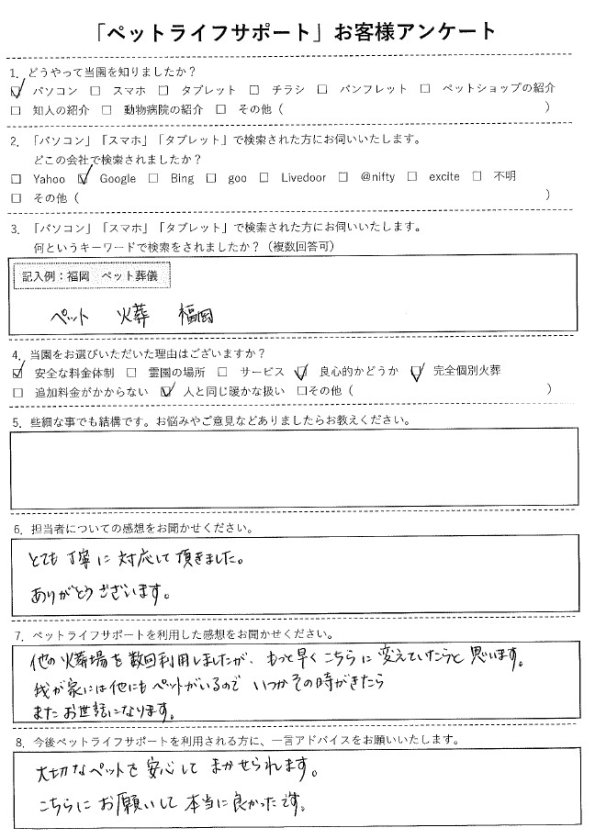 「ペットライフサポート」お客様アンケート
1. どうやって当園を知りましたか？
☑ パソコン □ スマホ □ タブレット □ チラシ □ パンフレット □ ペットショップの紹介
□ 知人の紹介 □ 動物病院の紹介 □ その他（ ）
2. 「パソコン」「スマホ」「タブレット」で検索された方にお伺いいたします。
どこの会社で検索されましたか？
□ Yahoo ☑ Google □ Bing □ goo □ Livedoor □ @nifty □ excite □ 不明
□ その他（ ）
3. 「パソコン」「スマホ」「タブレット」で検索された方にお伺いいたします。
何というキーワードで検索をされましたか？（複数回答可）
記入例：福岡 ペット葬儀
ペット 火葬 福岡
4. 当園をお選びいただいた理由はございますか？
☑ 安全な料金体制 □ 霊園の場所 □ サービス ☑ 良心的かどうか ☑ 完全個別火葬
□ 追加料金がかからない ☑ 人と同じ暖かな扱い □その他（ ）
5. 些細な事でも結構です。お悩みやご意見などありましたらお教えください。
6. 担当者についての感想をお聞かせください。
とても丁寧に対応して頂きました。
ありがとうございます。
7. ペットライフサポートを利用した感想をお聞かせください。
他の火葬場を数回利用しましたが、もっと早くこちらに変えていたらと思います。
我が家には他にもペットがいるので いつかその時がきたら
またお世話になります。
8. 今後ペットライフサポートを利用される方に、一言アドバイスをお願いいたします。
大切なペットを安心してまかせられます。
こちらにお願いして本当に良かったです。